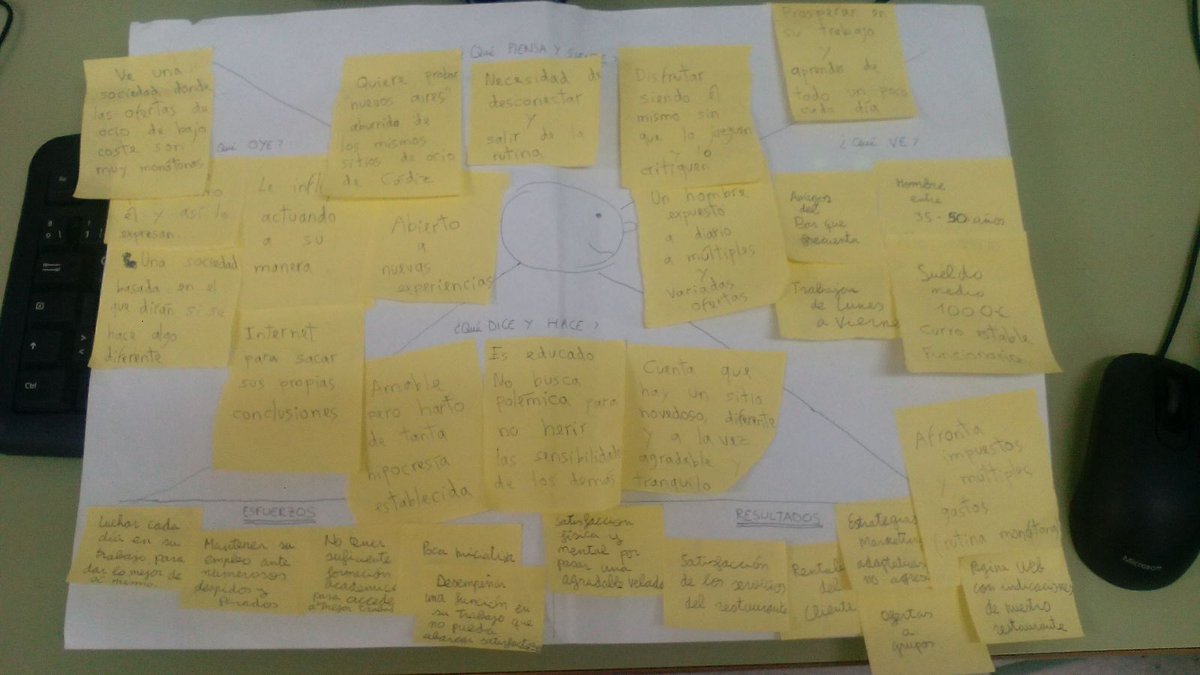 ¿Qué PIENSA Y
Ve una
sociedad donde
las ofertas de
ocio de bajo
coste son
muy monótonas
Quiere probar
"nuevos aires"
aburrido de
los mismos
sitios de ocio
de Cádiz
Necesidad de
desconectar
y
salir de la
rutina
Disfrutar
siendo él
mismo sin
que lo juzguen
y lo
critiquen
Prosperar en
su trabajo
y
aprender de
todo un poco
cada día
Qué OYE?
él y así lo
expresan
Una sociedad
basada en el
que dirán si se
hace algo
diferente
Le infl
actuando
a su
manera
Internet
para sacar
sus propias
conclusiones
Abierto
a
nuevas
experiencias
¿Qué VE?
Un hombre
expuesto
a diario
a múltiples
y
variadas
ofertas
Amigos
del
Bar que
frecuenta
Trabajan
de Lunes
a Vierne
Hombre
entre
35-50 años
Sueldo
medio
1000€
Curro estable
Funcionario
¿Qué DICE Y HACE?
Amable
pero harto
de tanta
hipocresía
establecida
Es educado
No busca
polémica para
no herir
las sensibilidade
de los demás
Cuenta que
hay un sitio
novedoso, diferente
y a la vez
agradable y
tranquilo
ESFUERZOS
Luchar cada
día en su
trabajo para
dar lo mejor de
sí mismo
Mantener su
empleo ante
numerosos
despidos y
parados
suficiente
formación
académica
para acceder
a mejor
Poca iniciativa
Desempeñar
una función en
su trabajo que
no pueda
abarcar
RESULTADOS
Satisfacción
física y
mental por
pasar una
agradable velada
Satisfacción
de los servicios
del restaurante
del
Cliente
Estrategias
Marketing
no
Ofertas
a
grupos
Afronta
impuestos
y múltiples
gastos
(rutina monótona)
Página Web
con indicaciones
de nuestro
restaurante
Microsoft